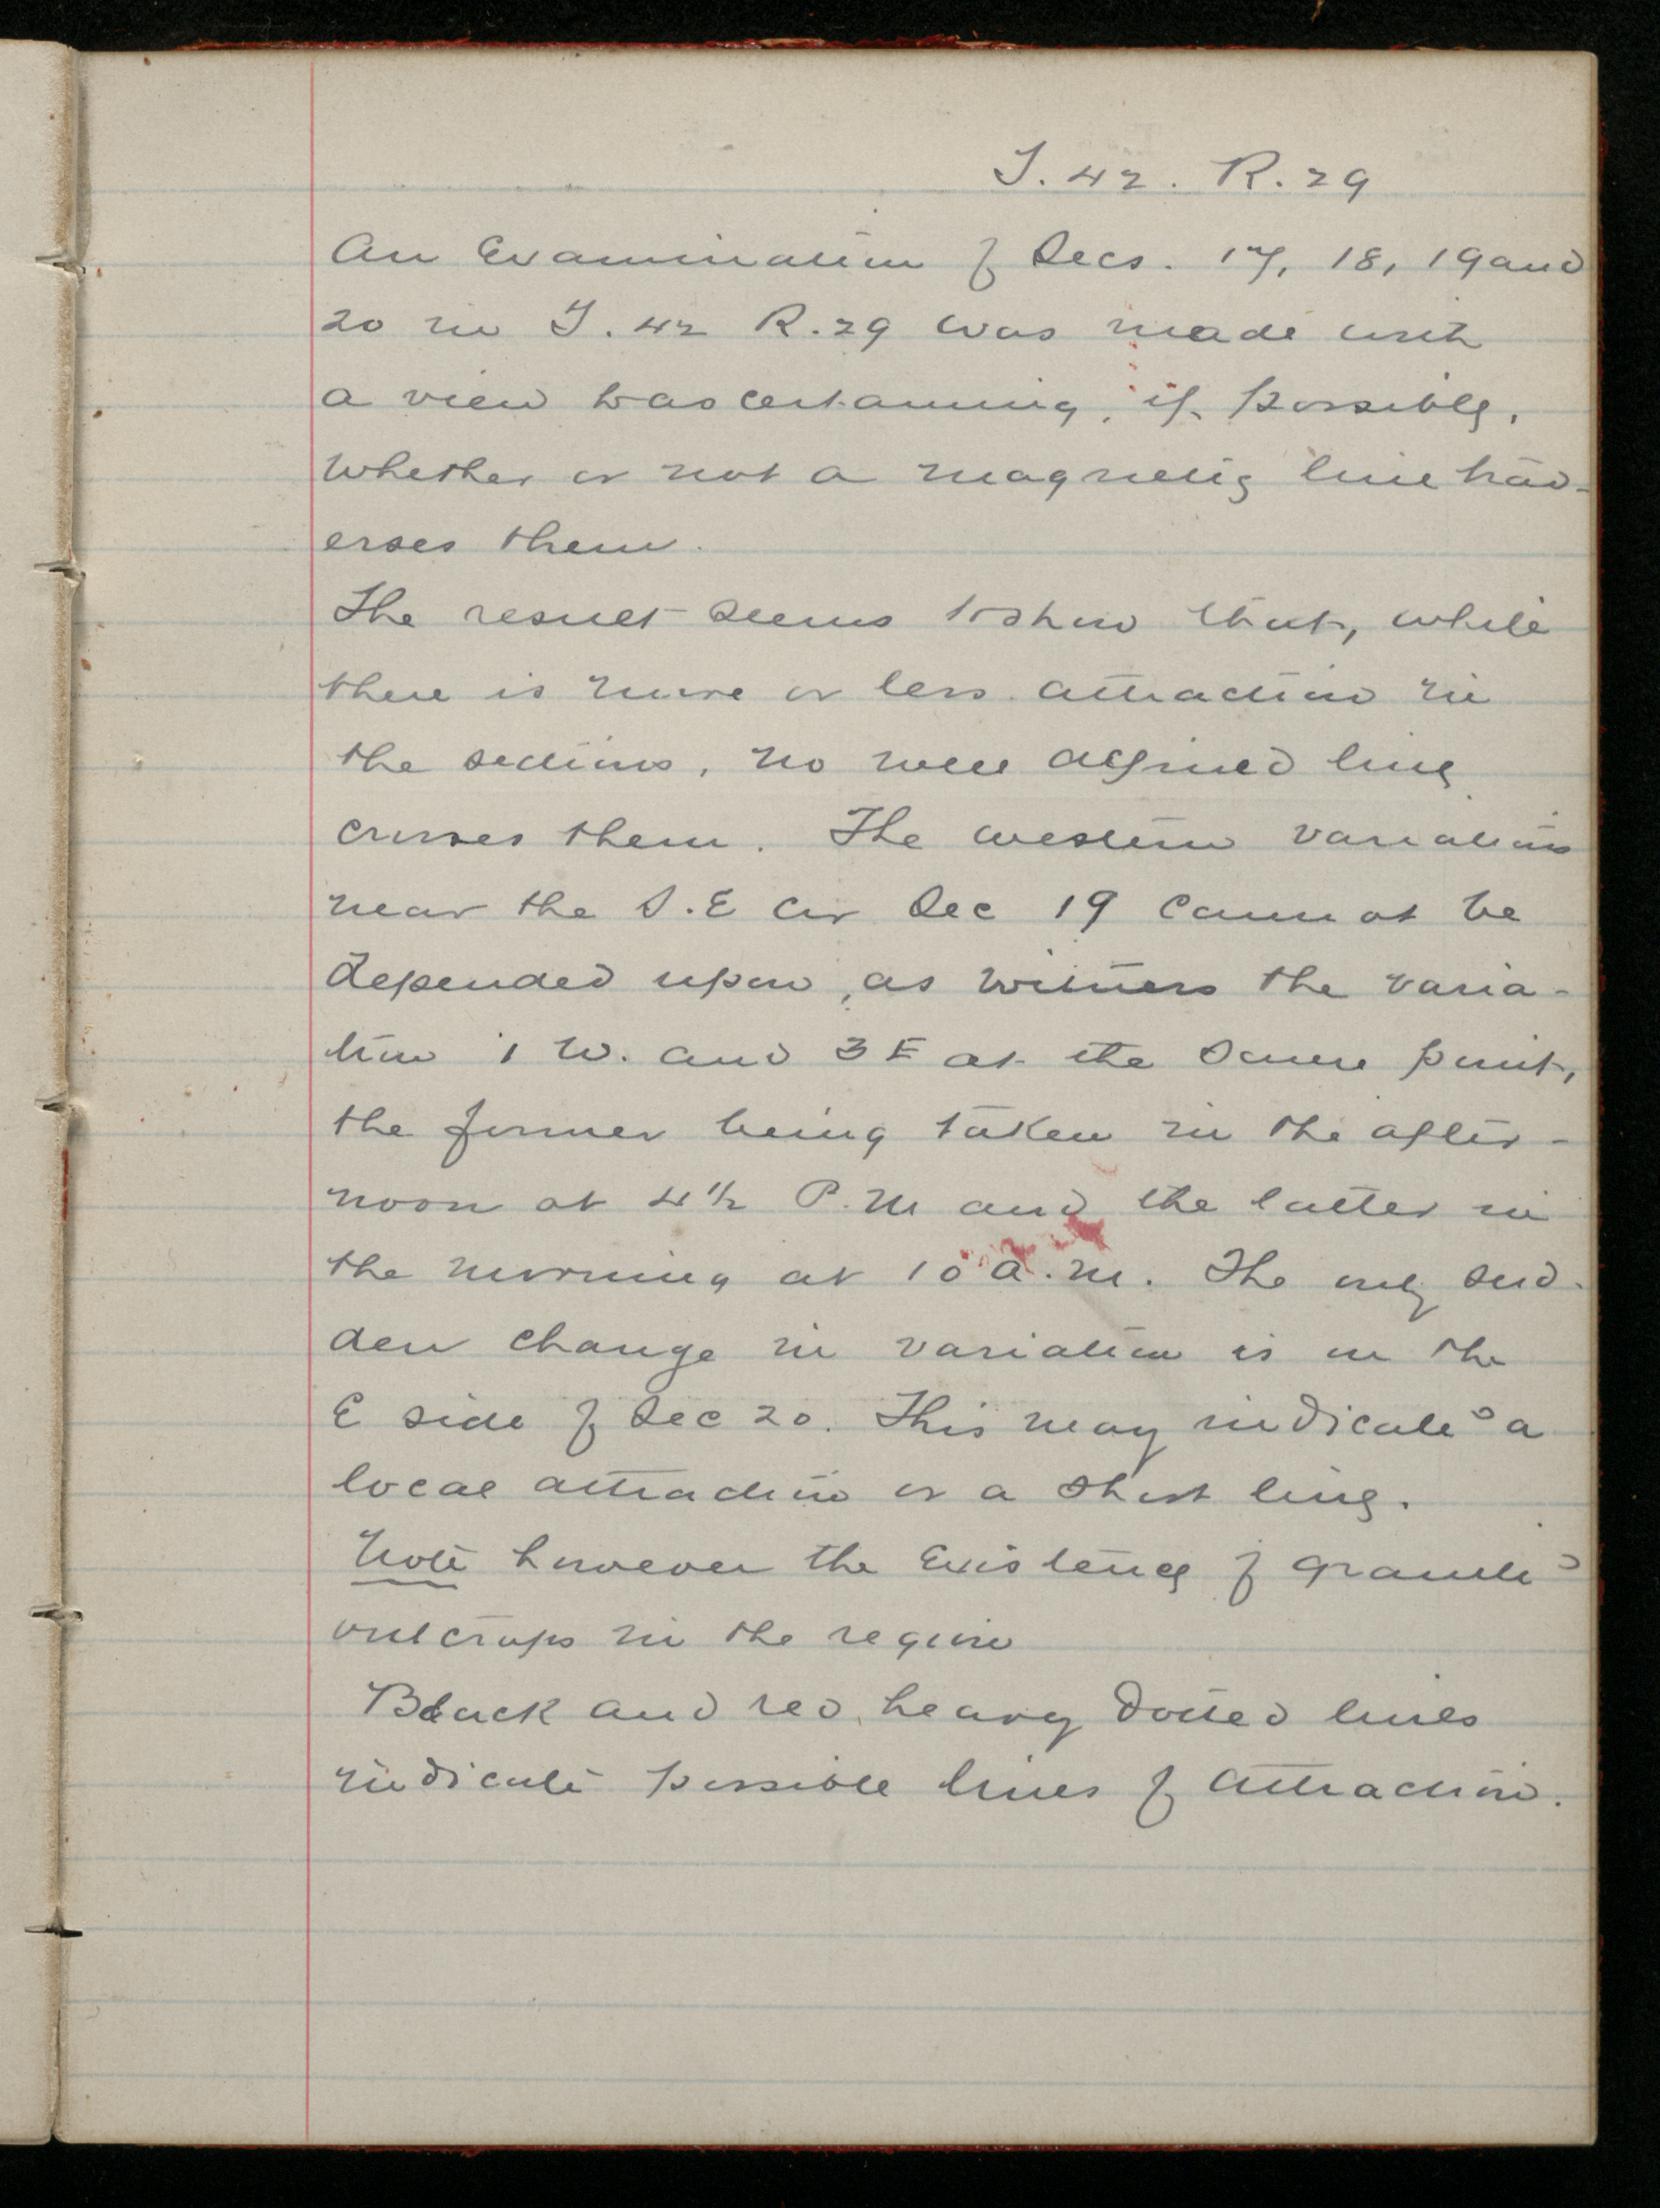 T. 42. R. 29
An Examination of Secs. 17, 18, 19 and
20 in T. 42 R. 29 was made with
a view to ascertaining, if possible,
whether or not a magnetic line trav-
erses them.
The result seems to show that, while
there is more or less attraction in
the sections, no well defined line
crosses them. The western variations
near the S.E Cor Sec 19 cannot be
depended upon, as witness the varia-
tion 1 W. and 3 E at the same point,
the former being taken in the after-
noon at 4 1/2 P.M and the latter in
the morning at 10 a.m. The only sud-
den change in variation is on the
E side of Sec 20. This may indicate a
local attraction or a short line.
Note however the Existence of granite
outcrops in the region
Black and red heavy dotted lines
indicate possible lines of attraction.